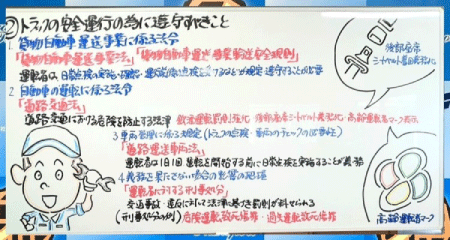 ②トラックの安全運行の為に遵守すべきこと
1.貨物自動車運送事業に係る法令
「貨物自動車運送事業法」「貨物自動車運送事業輸送安全規則」
運転者は日常点検の実施・確認、
2.自動車の運転に係る法令
「道路交通法」
道路交通における危険を防止する法律 飲酒運転罰則強化・後部座席シートベルト着用義務化・高齢運転者マーク表示
3.車両管理に係る規定(トラックの点検・車両のチェックの必要性)
「道路運送車両法」
運転者は1日1回運転を開始する前に日常点検を実施することが義務
4.義務を果たさない場合の影響の把握
「運転者に対する刑事処分」
交通事故・違反に対して法律に基づき罰則が科せられる
(刑事処分の例)危険運転致死傷罪・過失運転致死傷罪
後部座席
シートベルト着用義務化
高齢運転者マーク